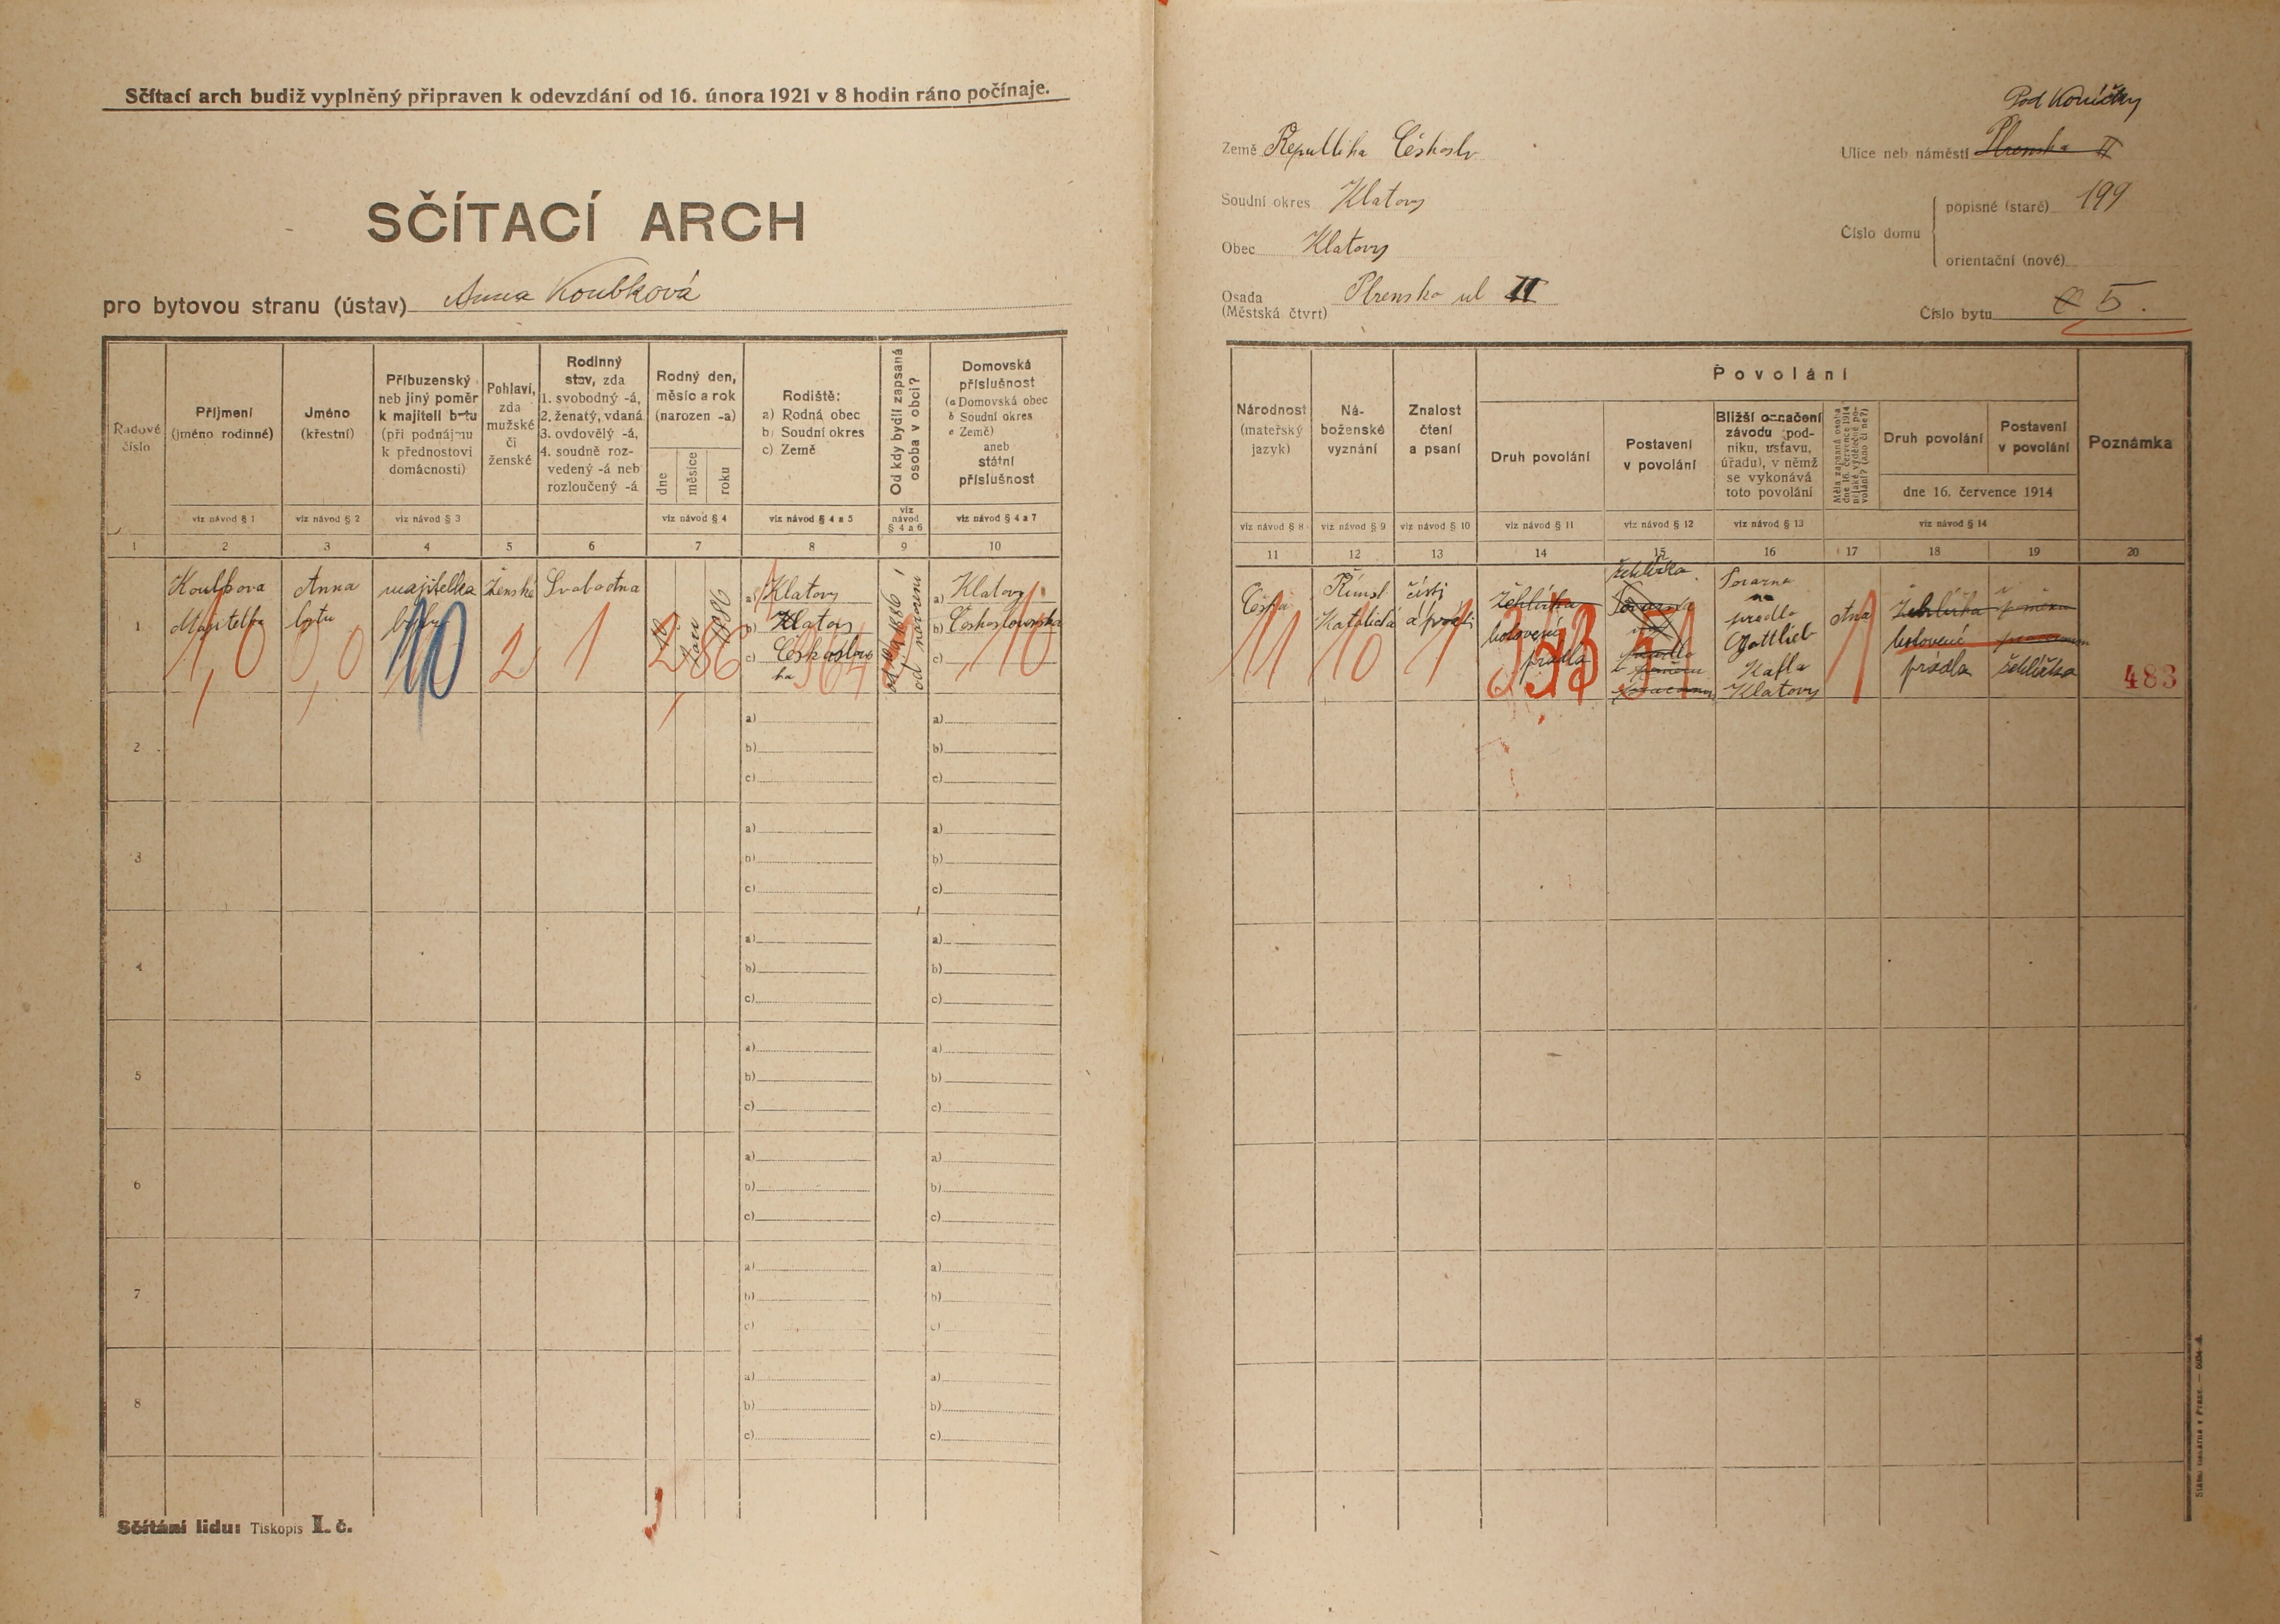 Sčítací arch budiž vyplněný připraven k odevzdání od 16. února 1921 v 8 hodin ráno počínaje.
SČÍTACÍ ARCH
pro bytovou stranu (ústav) Anna Koubková
Řadové číslo
Příjmení (jméno rodinné)
Jméno (křestní)
Příbuzenský neb jiný poměr k majiteli bytu (při podnájmu k přednostovi domácnosti)
Pohlaví, zda mužské či ženské
Rodinný stav, zda
1. svobodný -á,
2. ženatý, vdaná
3. ovdovělý -á,
4. soudně rozvedený -á neb rozloučený -á
Rodný den, měsíc a rok (narozen -a)
dne
měsíce
roku
Rodiště:
a) Rodná obec
b) Soudní okres
c) Země
Od kdy bydlí zapsaná osoba v obci?
Domovská příslušnost
(a Domovská obec
b Soudní okres
c Země)
aneb
státní příslušnost
viz návod § 1
viz návod § 2
viz návod § 3
viz návod § 4
viz návod § 4 a 5
viz návod § 4 a 6
viz návod § 4 a 7
1 2 3 4 5 6 7 8 9 10
1
Koubkova
Majitelka
Anna
bytu
majitelka
bytu
Ženské
Svobodna
1886
a) Klatovy
b) Klatovy
c) Českoslovo
od narození
a) Klatovy
b) Československa
c)
1,0 0,0 10 2 1 2 86 10
2
a)
b)
c)
a)
b)
c)
3
a)
b)
c)
a)
b)
c)
4
a)
b)
c)
a)
b)
c)
5
a)
b)
c)
a)
b)
c)
6
a)
b)
c)
a)
b)
c)
7
a)
b)
c)
a)
b)
c)
8
a)
b)
c)
a)
b)
c)
Sčítání lidu: Tiskopis I. č.
Země Republika Českoslv
Soudní okres Klatovy
Obec Klatovy
Osada (Městská čtvrt) Plzenska ul II
Pod Koníčky
Ulice neb náměstí Plzenska II
Číslo domu
popisné (staré) 199
orientační (nové)
Číslo bytu 5.
Národnost (mateřský jazyk)
Náboženské vyznání
Znalost čtení a psaní
Povolání
Druh povolání
Postavení v povolání
Bližší označení závodu (podniku, ústavu, úřadu), v němž se vykonává toto povolání
Měla zapsaná osoba dne 16. července 1914 nějaké výdělečné povolání? (ano či ne?)
Druh povolání
Postavení v povolání
dne 16. července 1914
Poznámka
viz návod § 8
viz návod § 9
viz návod § 10
viz návod § 11
viz návod § 12
viz návod § 13
viz návod § 14
11 12 13 14 15 16 17 18 19 20
Česka
Římsk
Katolická
čísti
a psáti
Žehlířka
hotového
prádla
žehlířka
Továrna
na
pradlo
Gottlieb
Kafka
Klatovy
Ana
Žehlířka
hotové
prádla
žehlířka
483
11 10 1 1
Státní tiskárna v Praze. — 6034-4.